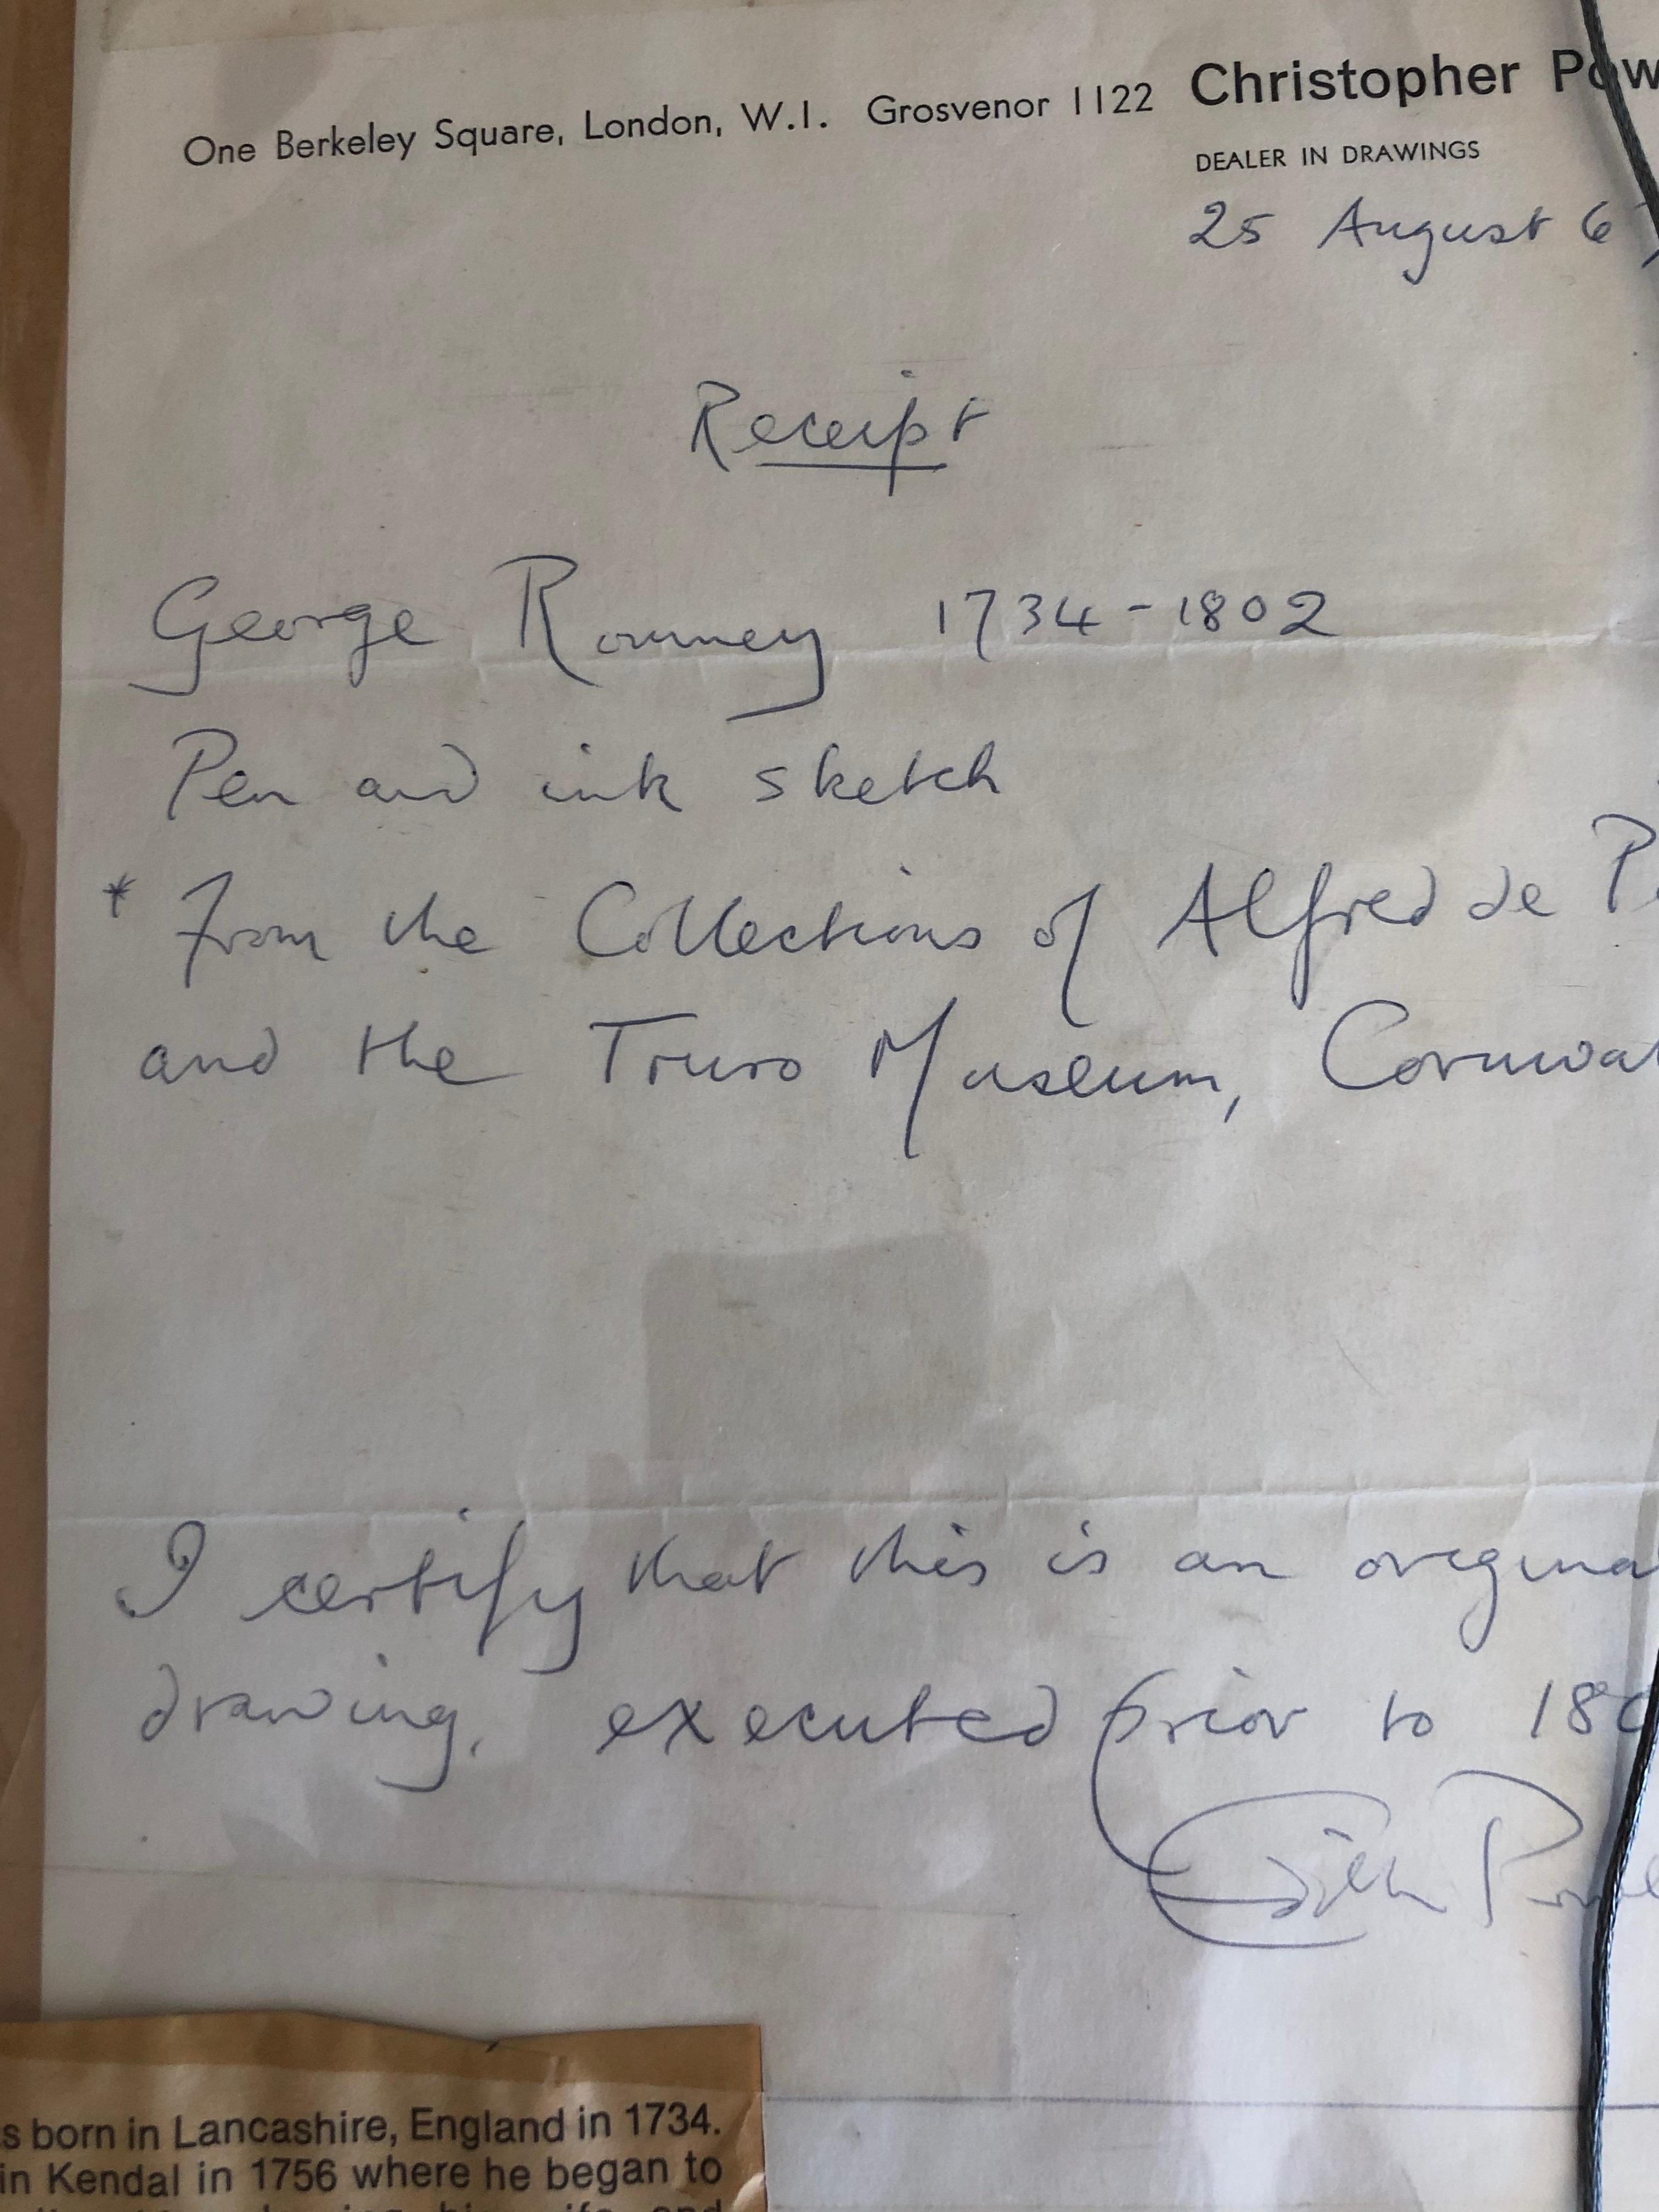 One Berkeley Square, London, W.I. Grosvenor 1122 Christopher Pow
DEALER IN DRAWINGS
25 August 6
Receipt
George Romney 1734-1802
Pen and ink sketch
* From the Collections of Alfred de P
and the Truro Museum, Cornwal
I certify that this is an original
drawing, executed prior to 180
Edith Powe
s born in Lancashire, England in 1734.
in Kendal in 1756 where he began to
his wife and